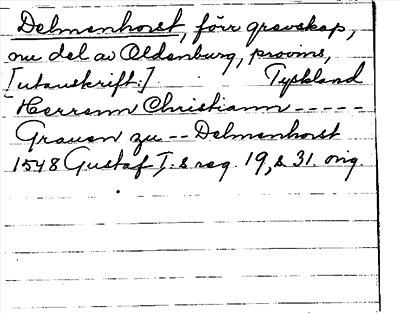 Delmenhorst, förr grevskap,
nu del av Oldenburg, provins,
[utanskrift:] Tyskland
Herrenn Christiann -----
Grauen zu -- Delmenhorst
1548 Gustaf I:s reg. 19, s 31. orig.